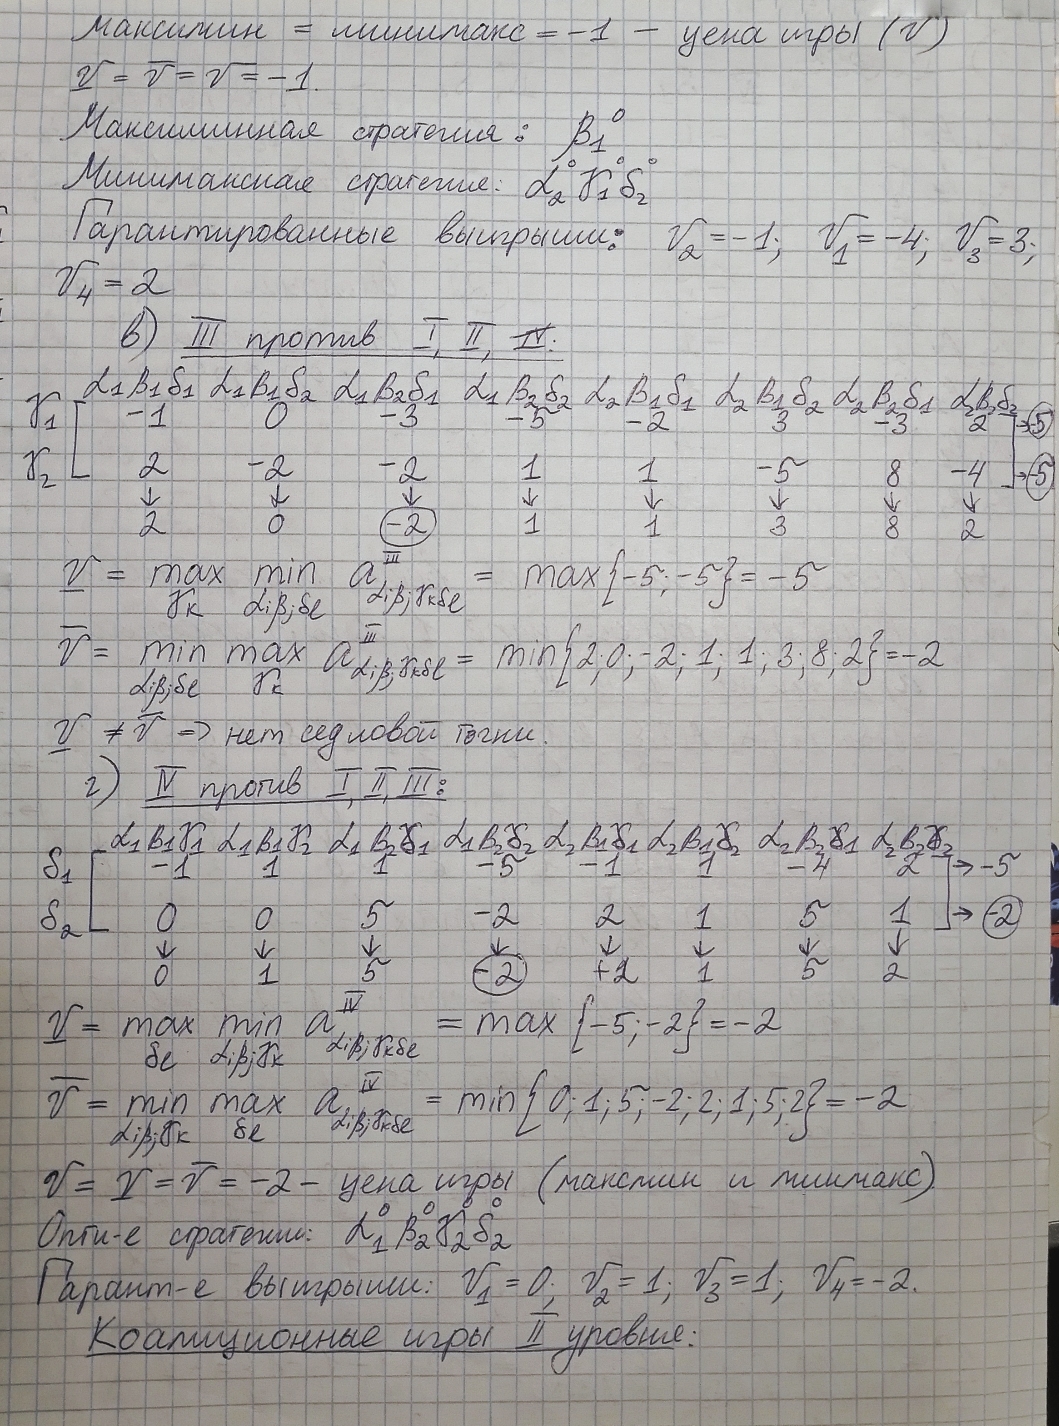 Максимин = минимакс = -1 - цена игры (V)
V̲ = V̅ = V = -1.
Максиминная стратегия: β₁⁰
Минимаксная стратегия: α₂⁰ γ₁⁰ δ₂⁰
Гарантированные выигрыши: V₂ = -1; V₁ = -4; V₃ = 3;
V₄ = 2
в) III против I, II, IV:
α₁β₁δ₁ α₁β₁δ₂ α₁β₂δ₁ α₁β₂δ₂ α₂β₁δ₁ α₂β₁δ₂ α₂β₂δ₁ α₂β₂δ₂
γ₁ -1 0 -3 -5 -2 3 -3 2 → -5
γ₂ 2 -2 -2 1 1 -5 8 -4 → -5
↓ ↓ ↓ ↓ ↓ ↓ ↓ ↓
2 0 -2 1 1 3 8 2
V̲ = max min a^III = max{-5; -5} = -5
γₖ αᵢβⱼδₑ αᵢβⱼγₖδₑ
V̅ = min max a^III αᵢβⱼγₖδₑ = min{2; 0; -2; 1; 1; 3; 8; 2} = -2
αᵢβⱼδₑ γₖ
V̲ ≠ V̅ => нет седловой точки.
г) IV против I, II, III:
α₁β₁γ₁ α₁β₁γ₂ α₁β₂γ₁ α₁β₂γ₂ α₂β₁γ₁ α₂β₁γ₂ α₂β₂γ₁ α₂β₂γ₂
δ₁ -1 1 1 -5 -1 1 -4 2 → -5
δ₂ 0 0 5 -2 2 1 5 1 → -2
↓ ↓ ↓ ↓ ↓ ↓ ↓ ↓
0 1 5 -2 +2 1 5 2
V̲ = max min a^IV = max {-5; -2} = -2
δₑ αᵢβⱼγₖ αᵢβⱼγₖδₑ
V̅ = min max a^IV αᵢβⱼγₖδₑ = min{0; 1; 5; -2; 2; 1; 5; 2} = -2
αᵢβⱼγₖ δₑ
V = V̲ = V̅ = -2 - цена игры (максмин и минмакс)
Опти-е стратегии: α₁⁰ β₂⁰ γ₂⁰ δ₂⁰
Гарант-е выигрыши: V₁ = 0; V₂ = 1; V₃ = 1; V₄ = -2.
Коалиционные игры II уровня: